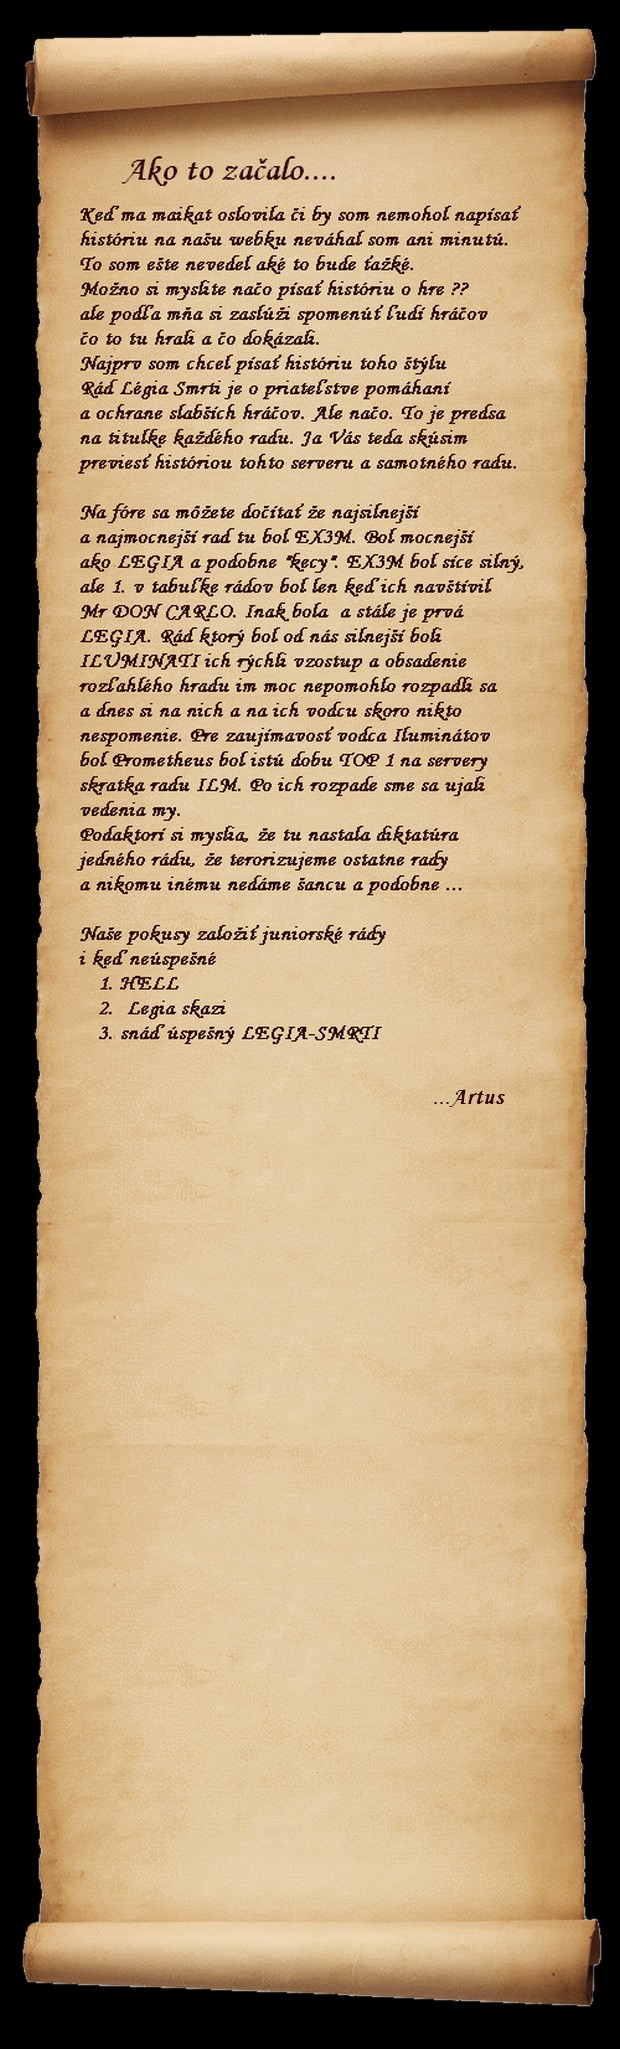 Ako to začalo....
Keď ma maikat oslovila či by som nemohol napísať
históriu na našu webku neváhal som ani minutú.
To som ešte nevedel aké to bude ťažké.
Možno si myslite načo písať históriu o hre ??
ale podľa mňa si zaslúži spomenúť ľudí hráčov
čo to tu hrali a čo dokázali.
Najprv som chcel písať históriu toho štýlu
Rád Légia Smrti je o priateľstve pomáhaní
a ochrane slabších hráčov. Ale načo. To je predsa
na titulke každého radu. Ja Vás teda skúsim
previesť históriou tohto serveru a samotného radu.
Na fóre sa môžete dočítať že najsilnejší
a najmocnejší rad tu bol EX3M. Bol mocnejší
ako LEGIA a podobne "kecy". EX3M bol síce silný,
ale 1. v tabuľke rádov bol len keď ich navštívil
Mr DON CARLO. Inak bola a stále je prvá
LEGIA. Rád ktorý bol od nás silnejší boli
ILUMINATI ich rýchli vzostup a obsadenie
rozľahlého hradu im moc nepomohlo rozpadli sa
a dnes si na nich a na ich vodcu skoro nikto
nespomenie. Pre zaujímavosť vodca Iluminátov
bol Prometheus bol istú dobu TOP 1 na servery
skratka radu ILM. Po ich rozpade sme sa ujali
vedenia my.
Podaktorí si myslia, že tu nastala diktatúra
jedného rádu, že terorizujeme ostatne rady
a nikomu inému nedáme šancu a podobne ...
Naše pokusy založiť juniorské rády
i keď neúspešné
1. HELL
2. Legia skazi
3. snáď úspešný LEGIA-SMRTI
...Artus